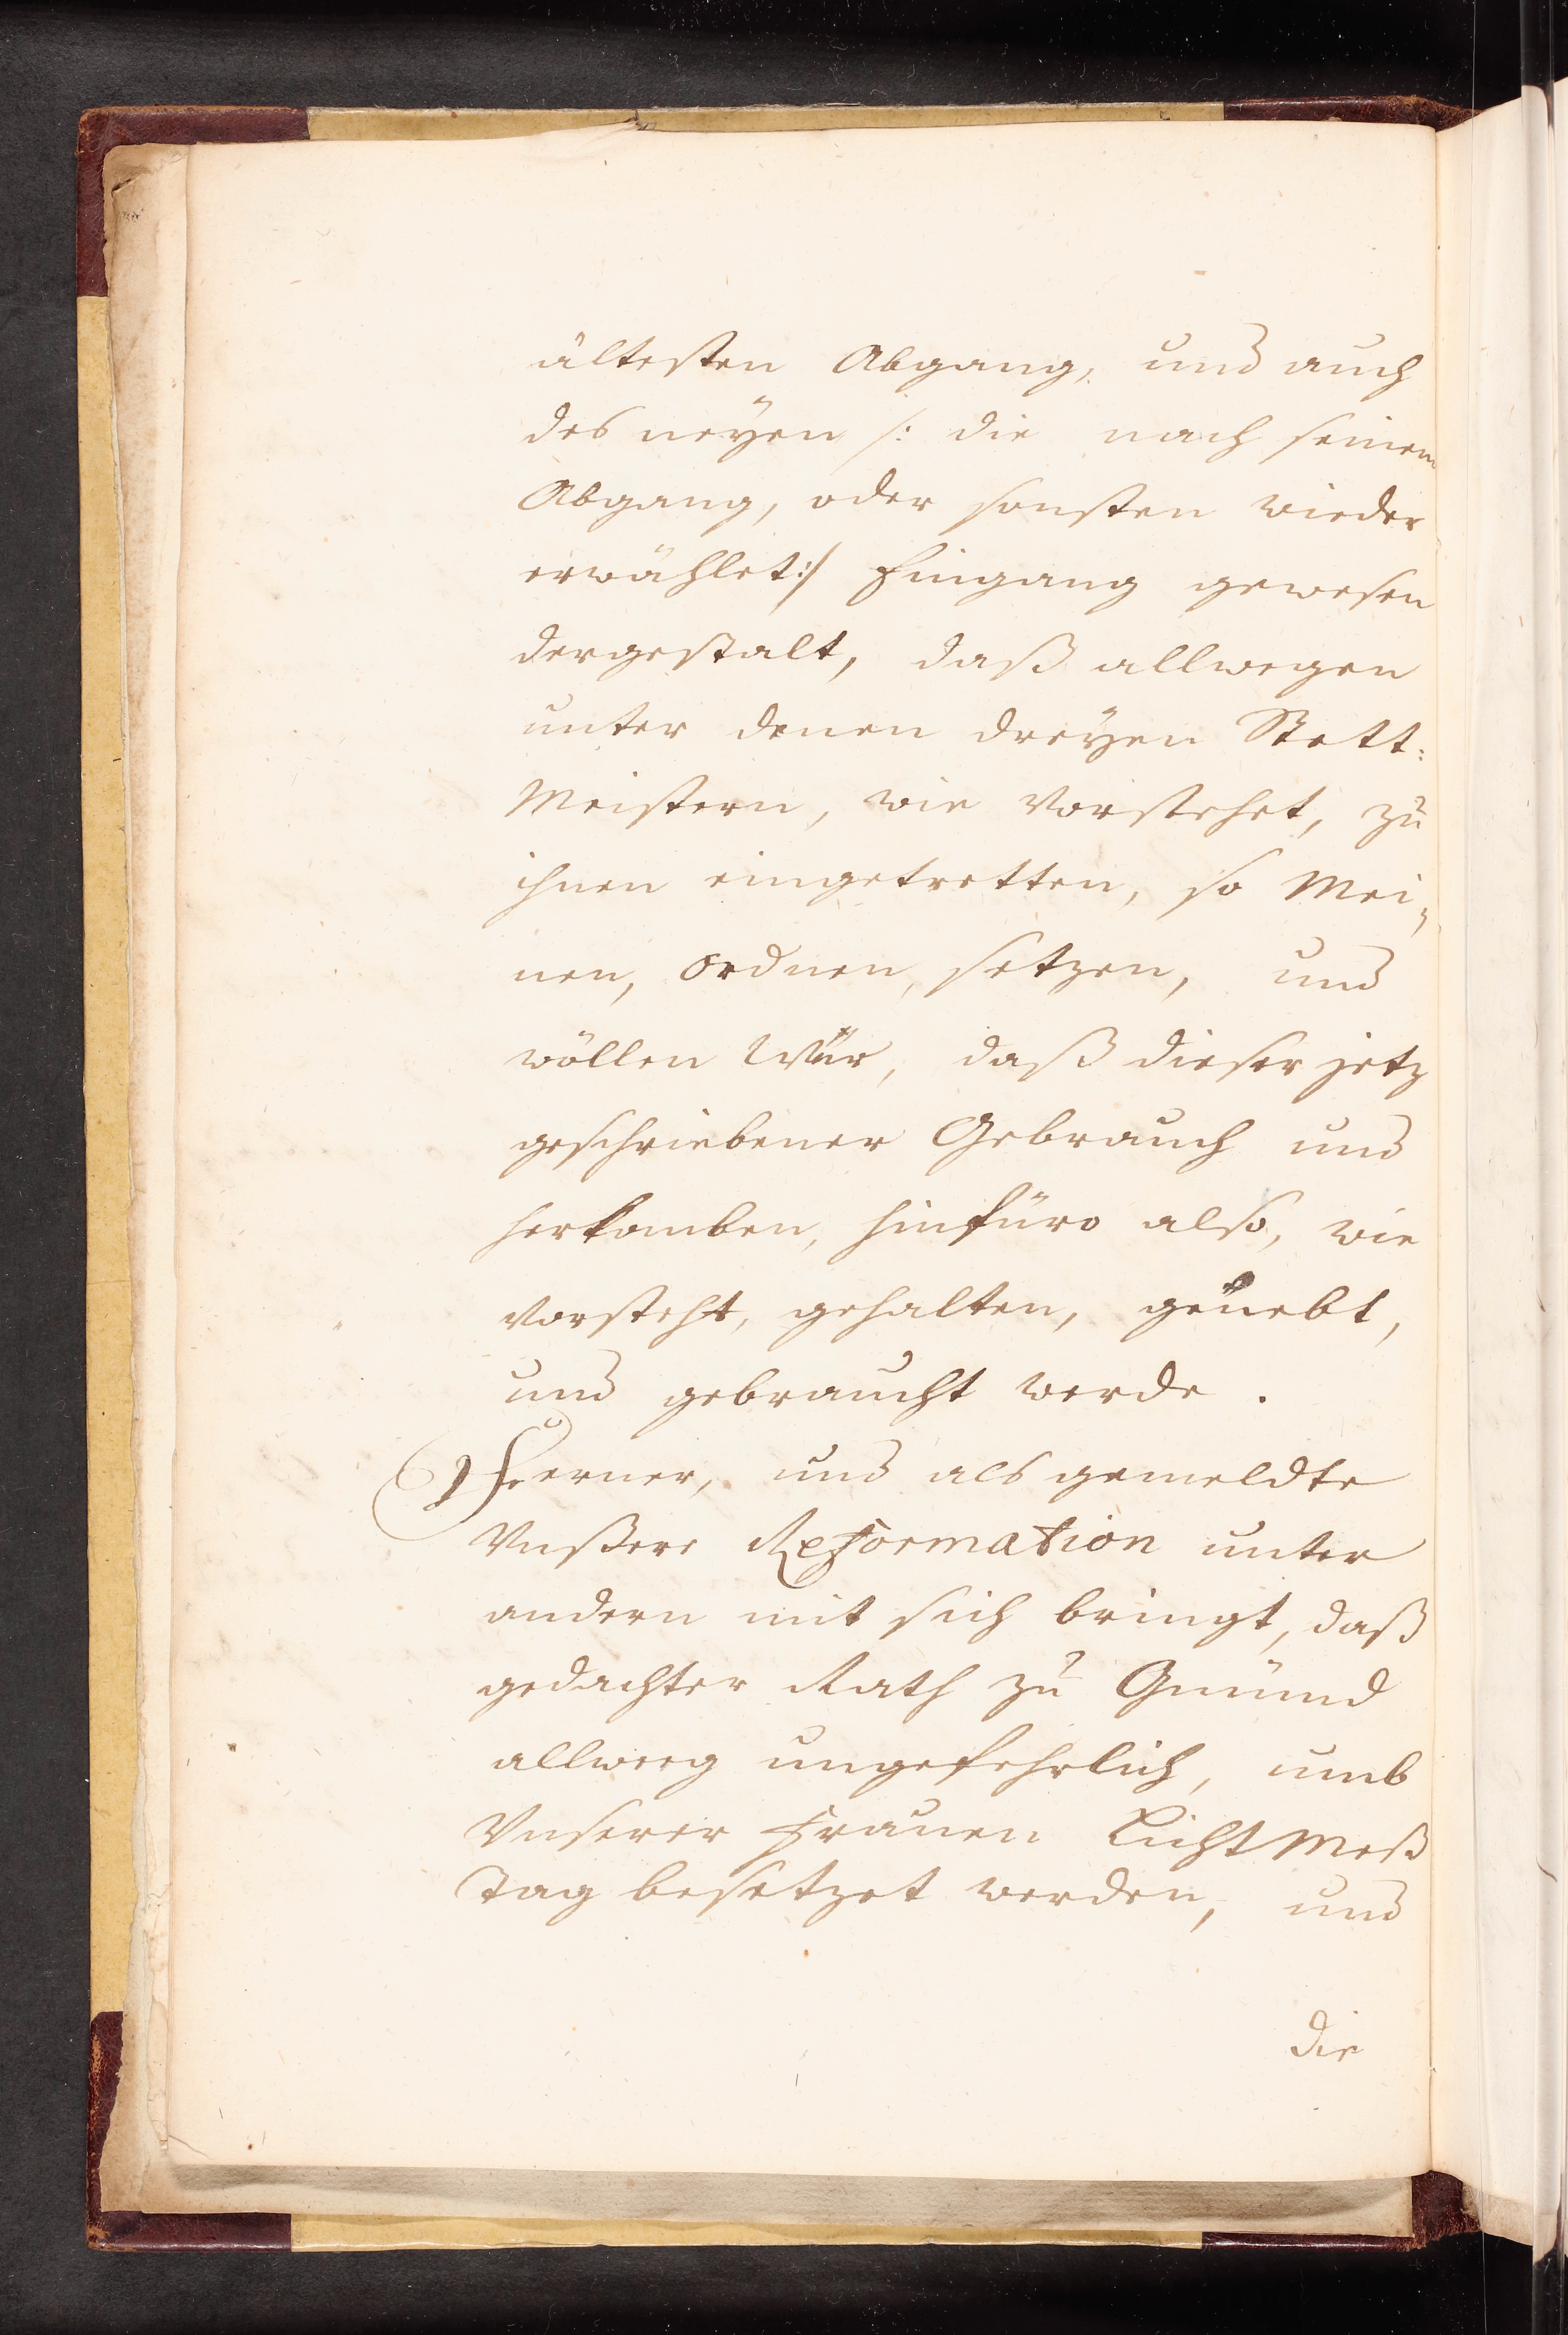 ältesten Abgang, und auch
des neyen /: die nach seinem
Abgang, oder sonsten wieder
erwählet:/ Eingang gewesen
dergestalt, daß allwegen
unter denen dreyen Stett:
Meistern, wie vorstehet, zu
ihnen eingetretten, so Mei„
nen, ordnen, setzen, und
wöllen Wür, daß dieser jetz
geschriebener Gebrauch und
herkomben, hinfüro also, wie
vorsteht, gehalten, geüebt,
und gebraucht werde.
Ferner, und als gemeldte
Vnßere Reformation unter
andern mit sich bringt, daß
gedachter Rath zu Gmünd
allweeg ungefehrlich, umb
Vnserer Frauen Liecht Meß
Tag besetzet werden, und
die